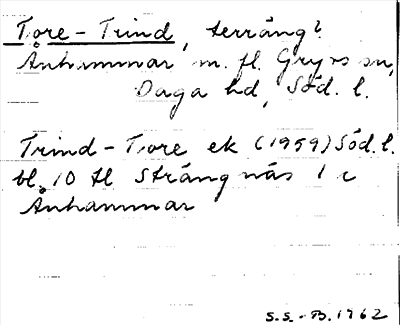 Tore-Trind, terräng?
Ånhammar m. fl. Gryts sn,
Daga hd, Söd. l.
Trind-Tore ek (1959) Söd. l.
bl. 10 tl Strängnäs 1 c
Ånhammar
S.S.-B. 1962